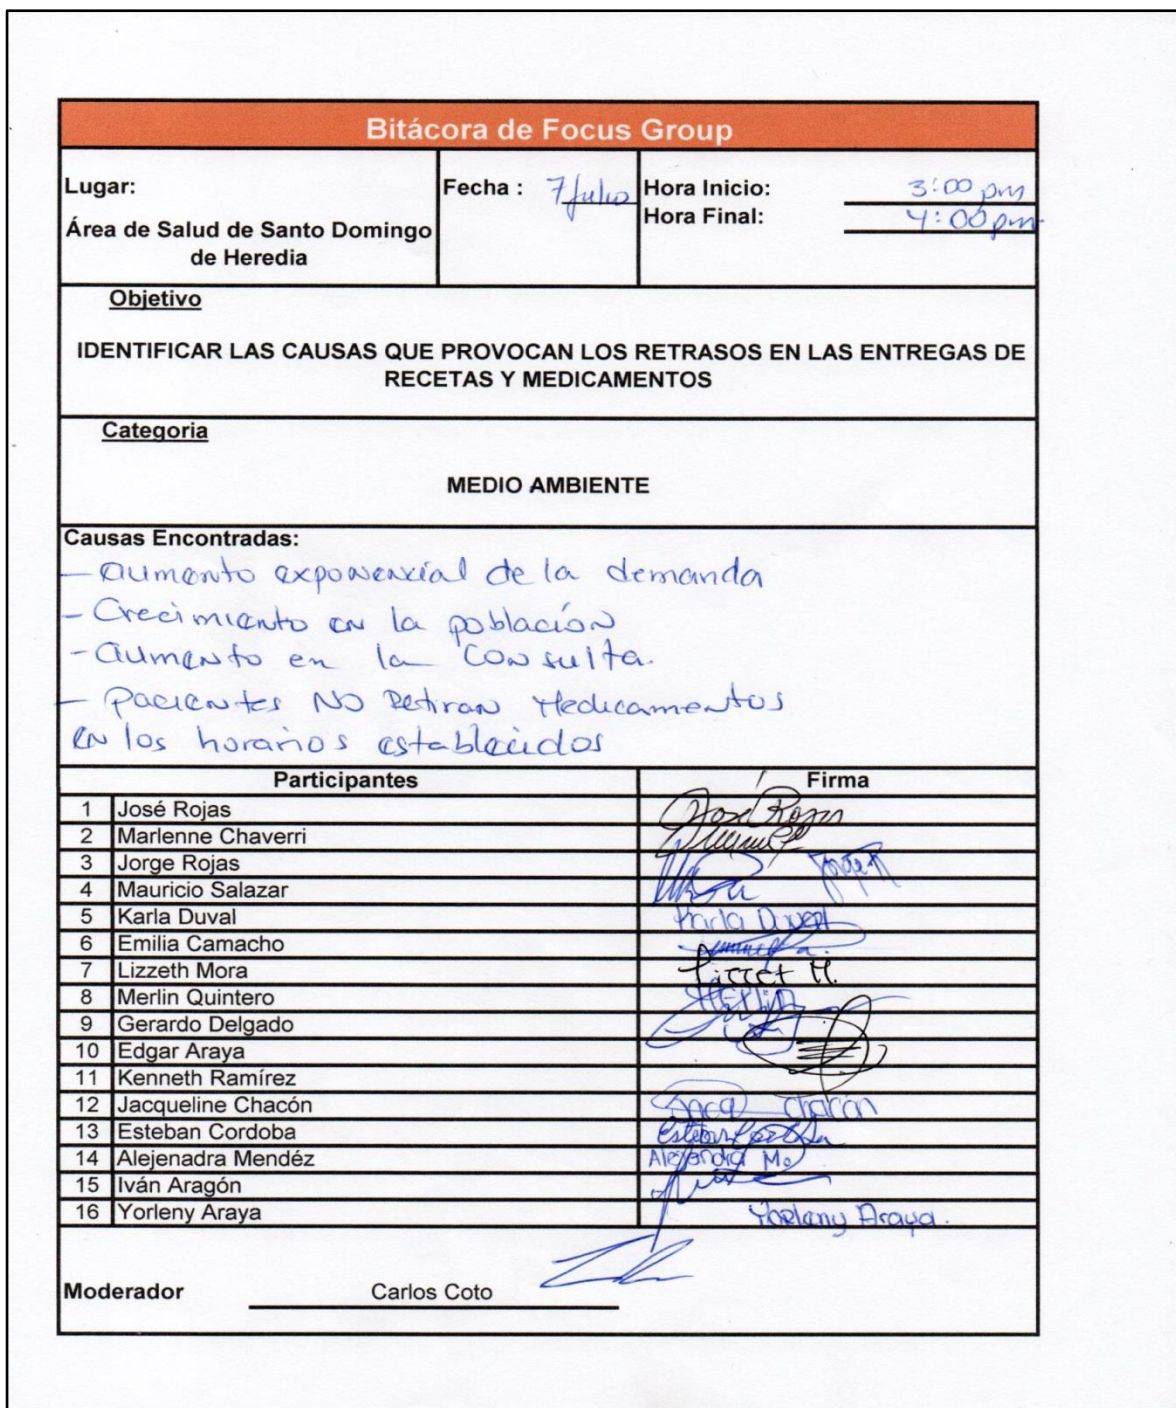 Bitácora de Focus Group
Lugar:
Área de Salud de Santo Domingo
de Heredia
Fecha : 7 julio
Hora Inicio: 3:00 pm
Hora Final: 4:00 pm
Objetivo
IDENTIFICAR LAS CAUSAS QUE PROVOCAN LOS RETRASOS EN LAS ENTREGAS DE
RECETAS Y MEDICAMENTOS
Categoria
MEDIO AMBIENTE
Causas Encontradas:
- aumento exponencial de la demanda
- Crecimiento en la población
- aumento en la consulta.
- pacientes NO Retiran Medicamentos
en los horarios establecidos
Participantes Firma
1 José Rojas José Rojas
2 Marlenne Chaverri
3 Jorge Rojas
4 Mauricio Salazar
5 Karla Duval Karla Duval
6 Emilia Camacho
7 Lizzeth Mora
8 Merlin Quintero Merlin
9 Gerardo Delgado
10 Edgar Araya
11 Kenneth Ramírez
12 Jacqueline Chacón Chacón
13 Esteban Cordoba
14 Alejenadra Mendéz Alejandra M.
15 Iván Aragón
16 Yorleny Araya Yorleny Araya.
Moderador Carlos Coto